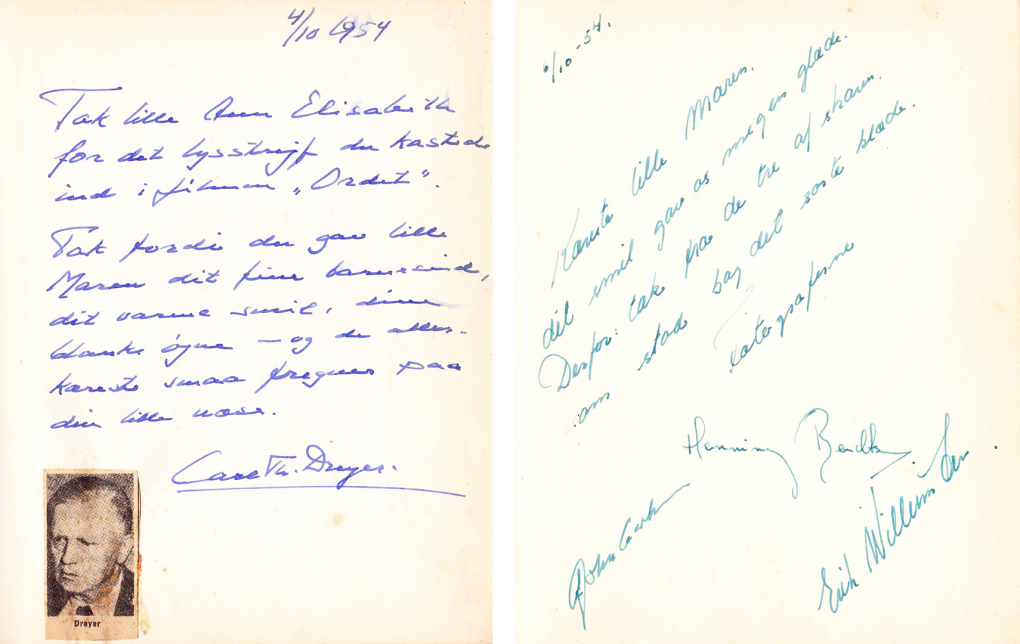 4/10 1954
Tak lille Ann Elisabeth
for det lysstrejf du kastede
ind i filmen „Ordet".
Tak fordi du gav lille
Maren dit fine barnesind,
dit varme smil, dine
blanke øjne – og de aller-
kæreste smaa fregner paa
din lille næse.
Carl Th. Dreyer.
Dreyer
6/10-54.
Kæreste lille Maren.
dit smil gav os megen glæde.
Derfor: tak fra de tre af skaren
som stod bag det sorte klæde.
fotograferne
Henning Bendtsen
John Carlsen
Erik Willumsen